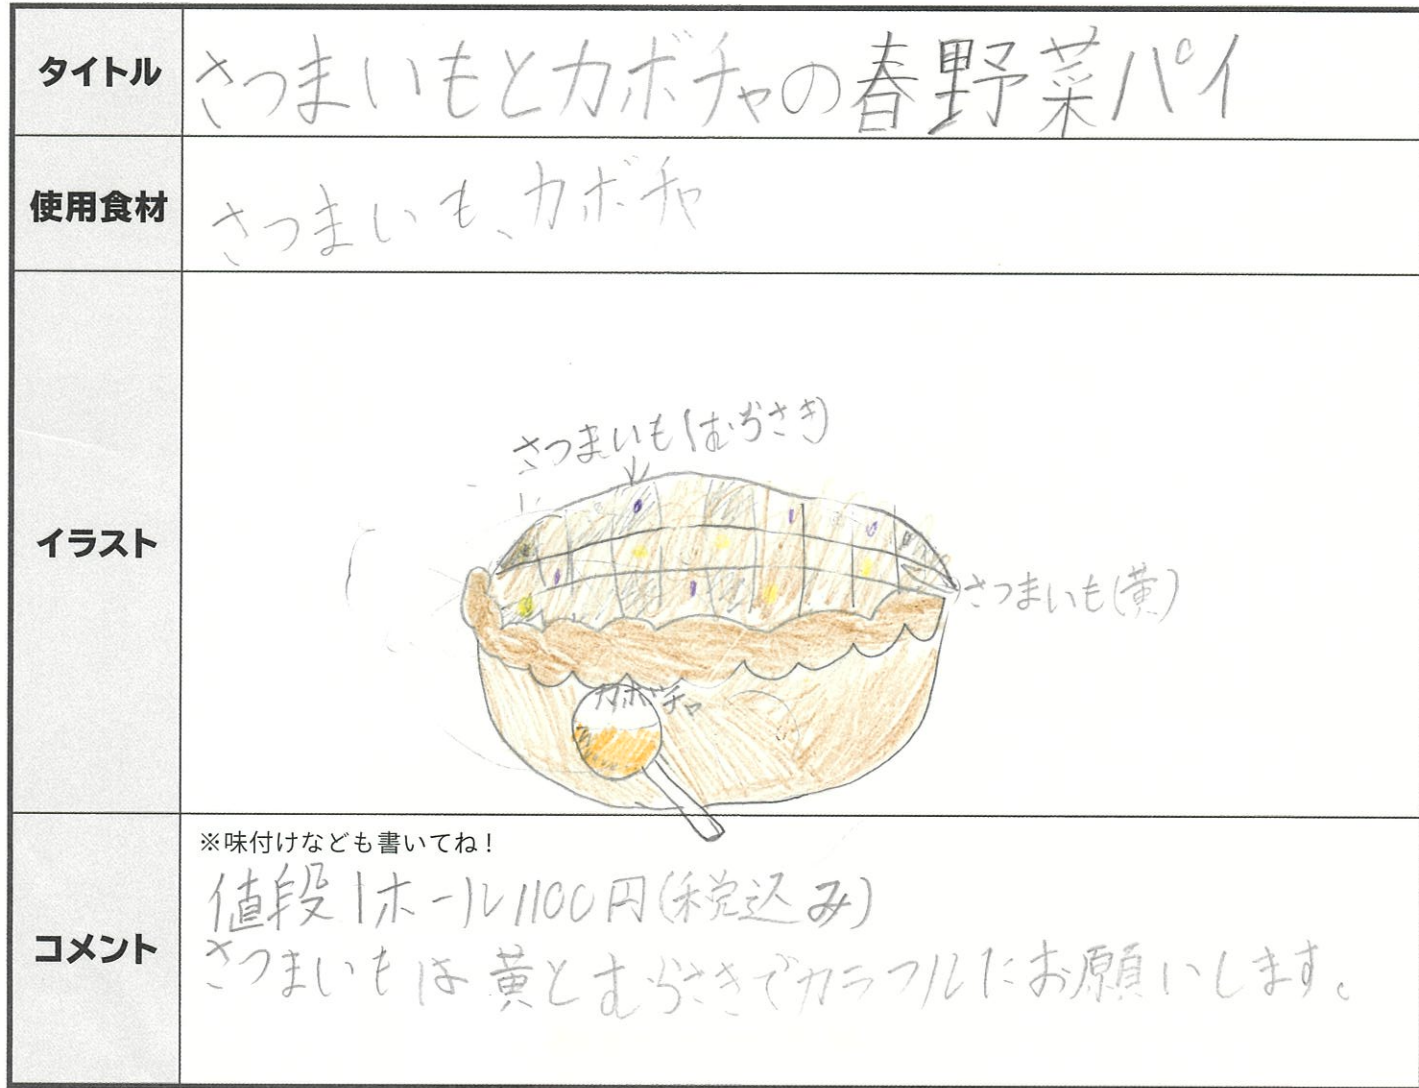 タイトル
さつまいもとカボチャの春野菜パイ
使用食材
さつまいも、カボチャ
イラスト
さつまいも(むらさき)
さつまいも(黄)
カボチャ
コメント
※味付けなども書いてね!
値段1ホール1100円(税込み)
さつまいもは黄とむらさきでカラフルにお願いします。